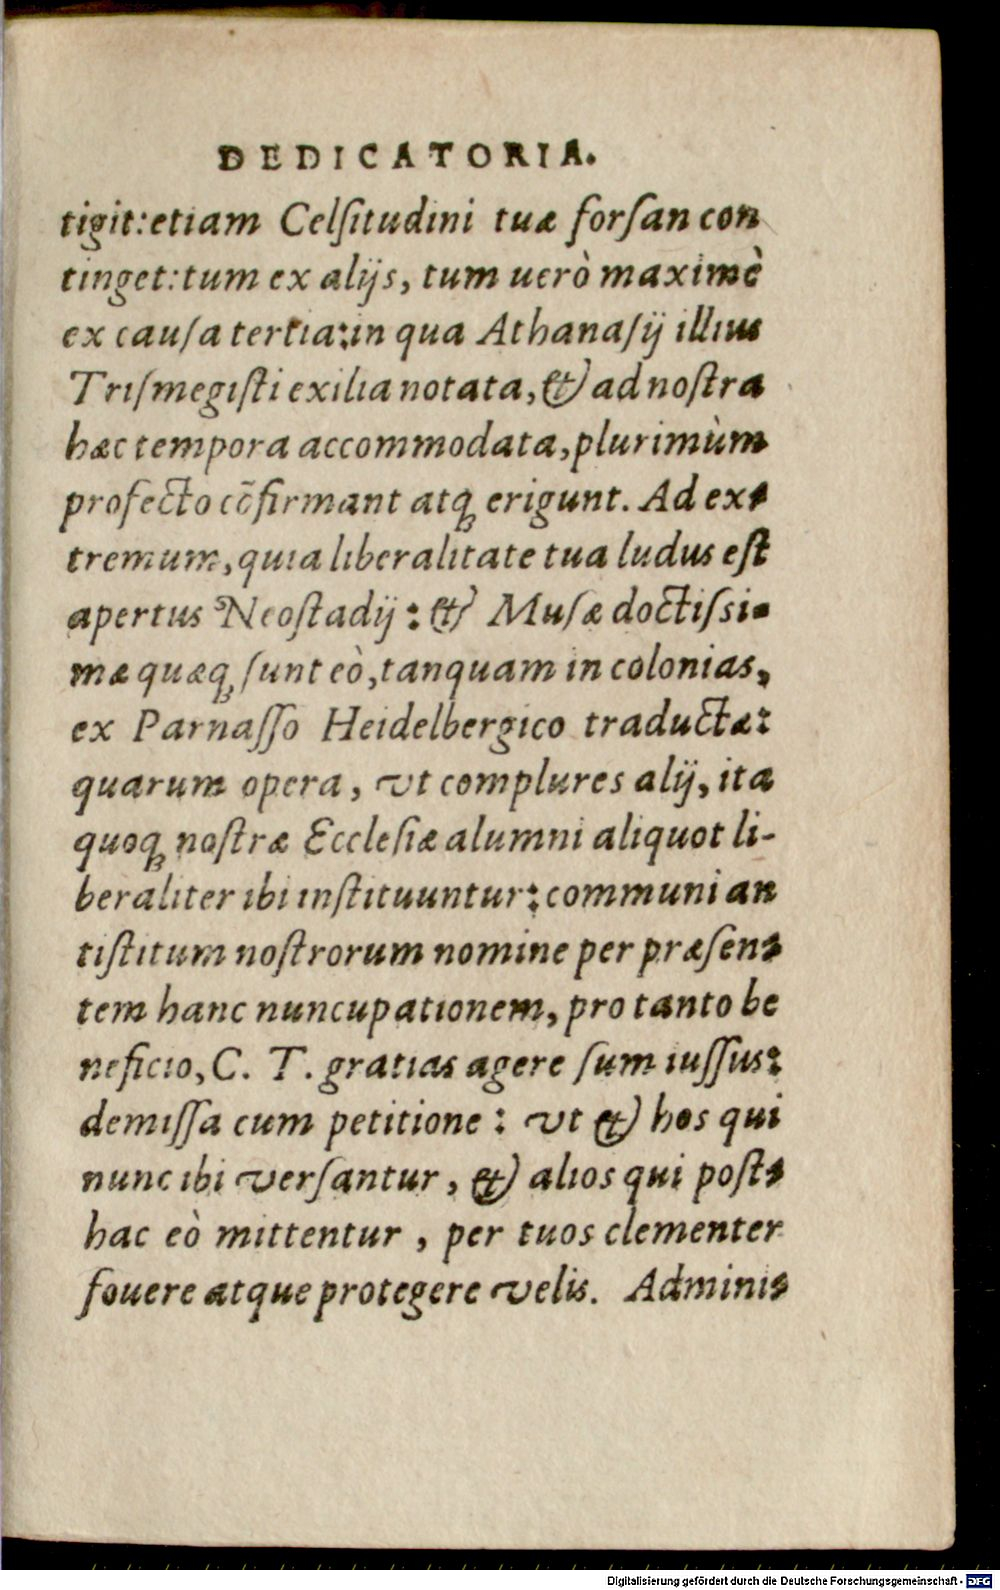 DEDICATORIA.
tigit: etiam Celſitudini tuæ forſan con
tinget: tum ex alijs, tum uerò maximè
ex cauſa tertia: in qua Athanaſij illius
Triſmegiſti exilia notata, & ad noſtra
hæc tempora accommodata, plurimùm
profecto cõfirmant atq́ꝫ erigunt. Ad ex⸗
tremum, quia liberalitate tua ludus eſt
apertus Neoſtadij: & Muſæ doctiſsi⸗
mæ quæqꝫ ſunt eò, tanquam in colonias,
ex Parnaſſo Heidelbergico traductæ:
quarum opera, vt complures alij, ita
quoqꝫ noſtræ Eccleſiæ alumni aliquot li-
beraliter ibi inſtituuntur: communi an
tiſtitum noſtrorum nomine per præſen⸗
tem hanc nuncupationem, pro tanto be
neficio, C. T. gratias agere ſum iuſſus:
demiſſa cum petitione: vt & hos qui
nunc ibi verſantur, & alios qui poſt⸗
hac eò mittentur, per tuos clementer
fouere atque protegere velis. Adminis⸗
Digitalisierung gefördert durch die Deutsche Forschungsgemeinschaft - DFG